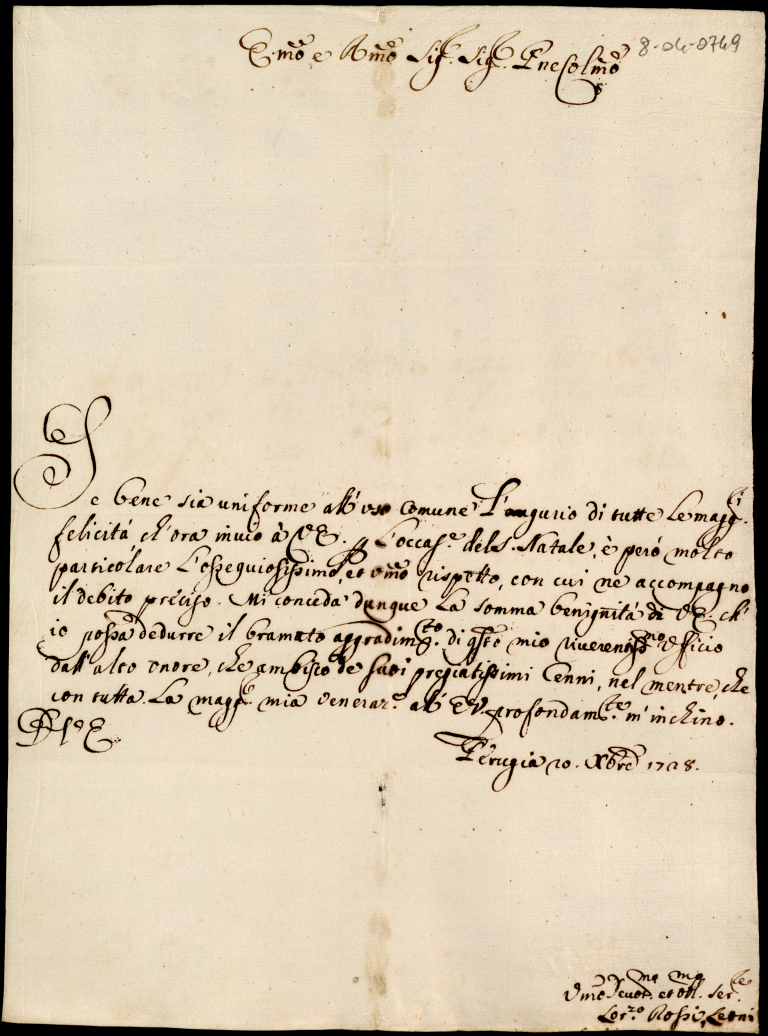 E.mo e R.mo Sig.r Sig.r P.ne Col.mo
8-04-0749
Se bene sia uniforme all'uso comune L'augurio di tutte Le magg.ri
felicità ch'ora invio à V.E. p L'occas.e del S. Natale, è però molto
particolare L'ossequiosissimo, et um̃o rispetto, con cui ne accompagno
il debito preciso. Mi conceda dunque La somma benignità di V.E. ch'
io possa dedurre il bramato aggradim.to di q̃sto mio riverentiss.mo Officio
dall'alto onore, che ambisco de suoi pregiatissimi Cenni, nel mentre, che
con tutta La magg.e mia veneraz.e all'E.V. profondam.te m'inchino.
D V.E.
Perugia 20. Xbre 1728.
Um̃o Devot.mo et obl.mo Ser.re
Lor.zo Rossi Leoni